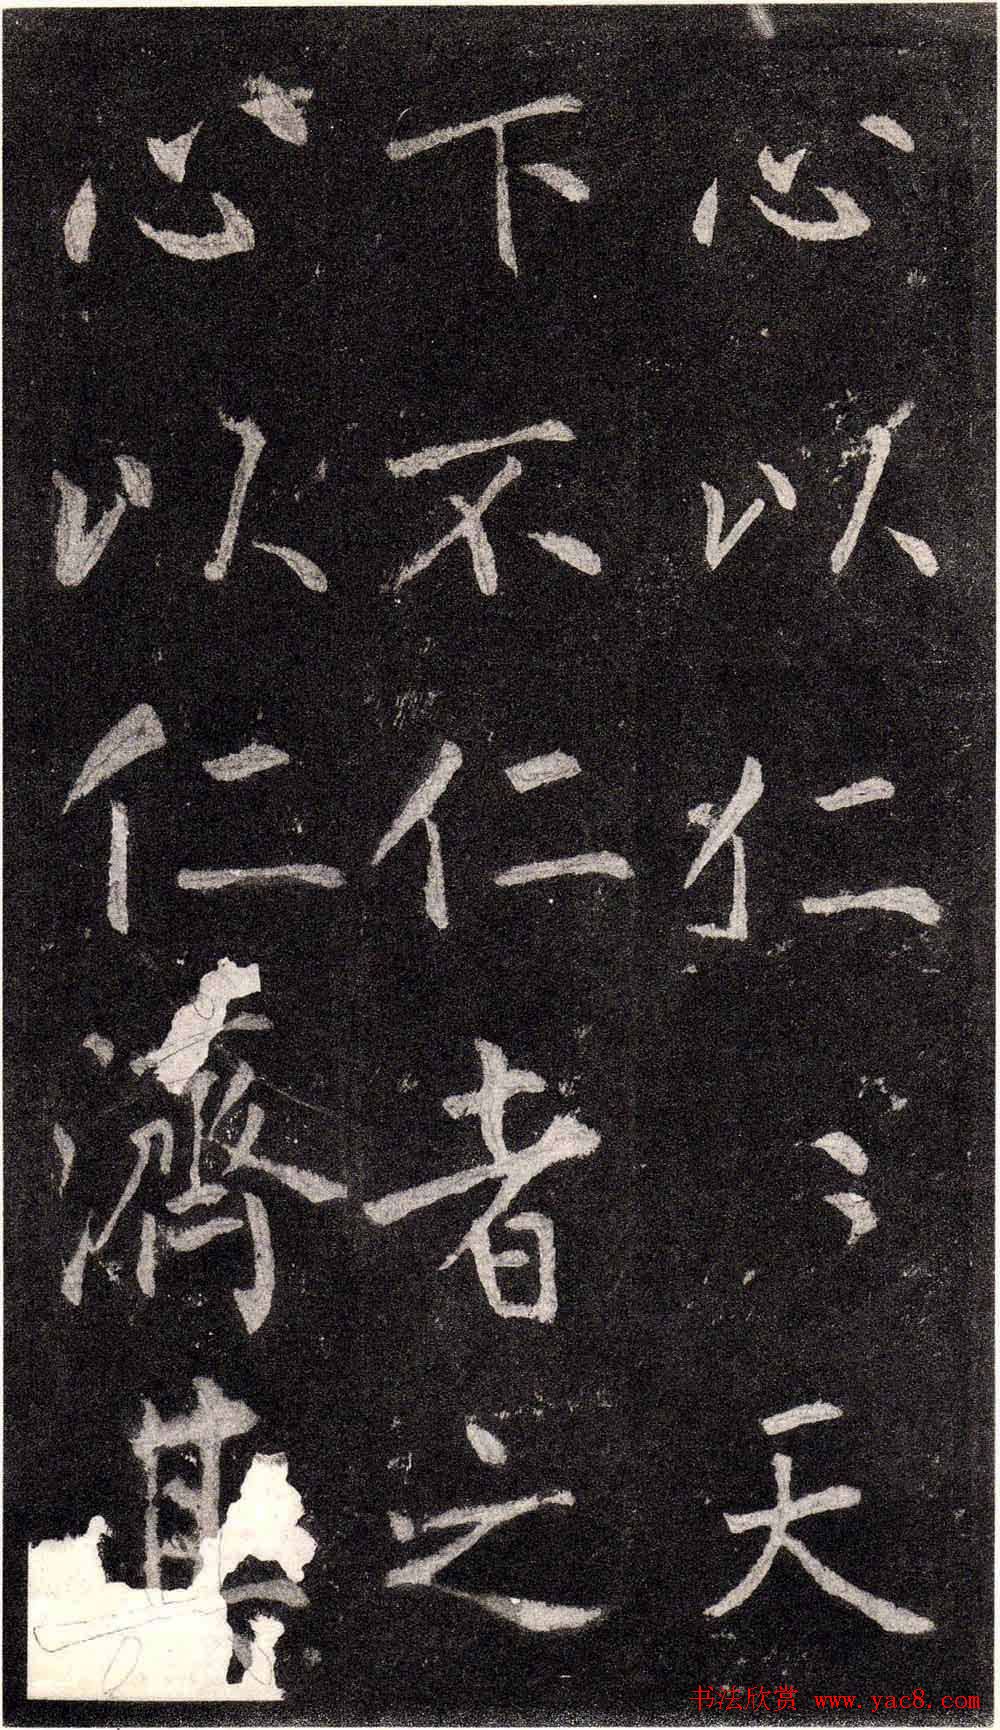 心以仁〻天
下不仁者之
心以仁濟其
书法欣赏 www.yac8.com